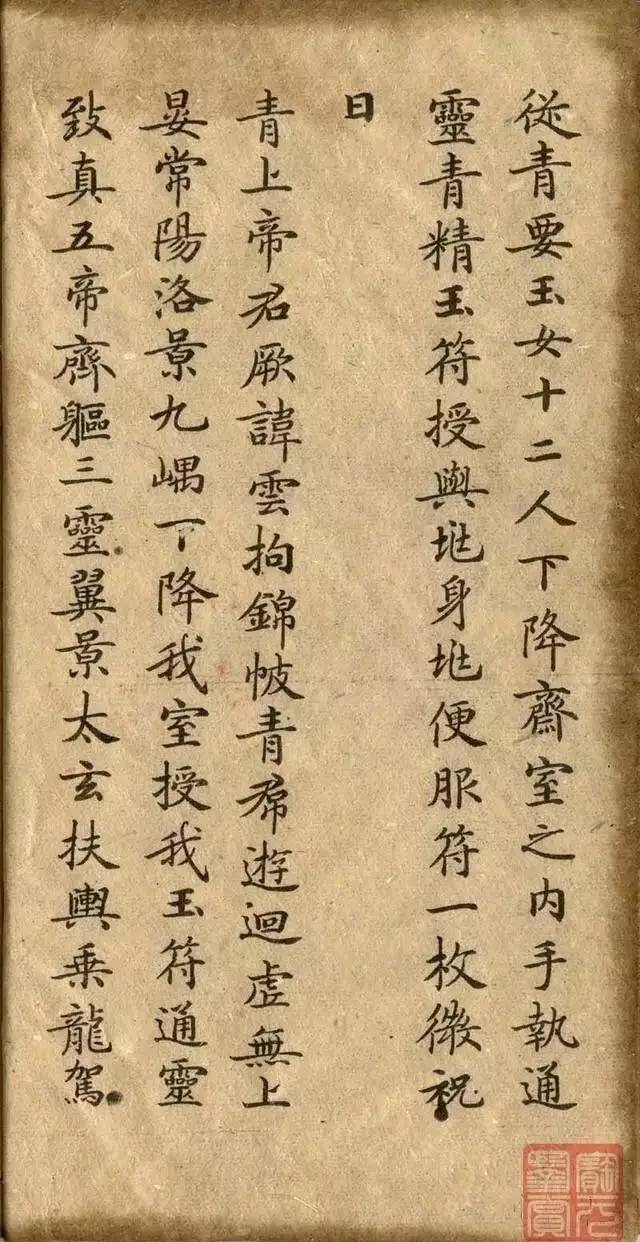 從青要玉女十二人下降齋室之內手執通
靈青精玉符授與兆身兆便服符一枚微祝
曰
青上帝君厥諱雲拘錦帔青帬遊迴虛無上
晏常陽洛景九嵎下降我室授我玉符通靈
致真五帝齊軀三靈翼景太玄扶轝乘龍駕